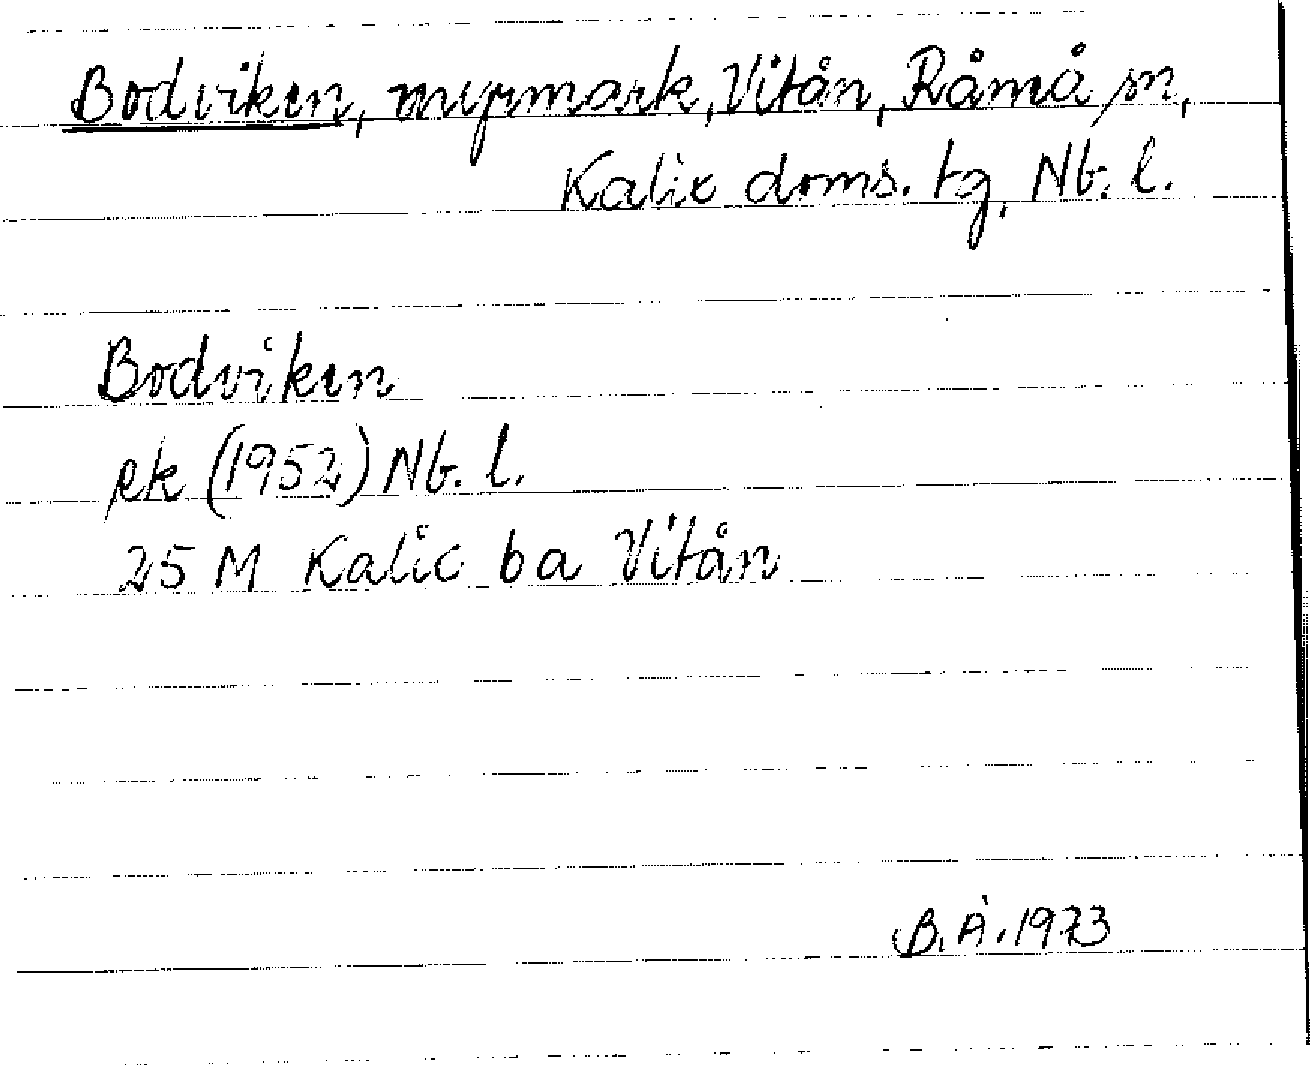 Bodviken, myrmark, Vitån, Råmå sn,
Kalix doms. tg, Nb. l.
Bodviken
ek (1952) Nb. l.
25 M Kalix ba Vitån
B. Å. 1973